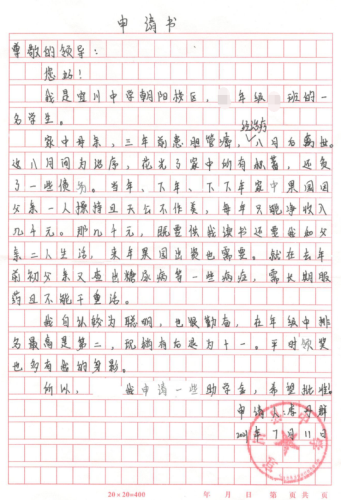 申请书
尊敬的领导：
您好！
我是宜川中学朝阳校区， 年级 班的一
名学生。
家中母亲，三年前患胆管癌，经治疗八月后离世。
这八月间为治疗，花光了家中所有积蓄，还负
了一些债务。当年、下年、下下年家中果园因
父亲一人操持且天公不作美，每年只能净收入
几千元。那几千元，既要供我读书还要我和父
亲二人生活，来年果园出资也需要。就在去年
前初父亲又查出糖尿病等一些病症，需长期服
药且不能干重活。
我自认较为聪明，也很勤奋，在年级中排
名最高是第二，现稍有后退为十一。平时领奖
也多有我的身影。
所以， 我申请一些助学金，希望批准。
申请人：
2021年7月11日
20×20=400
年 月 日 第 页 共 页